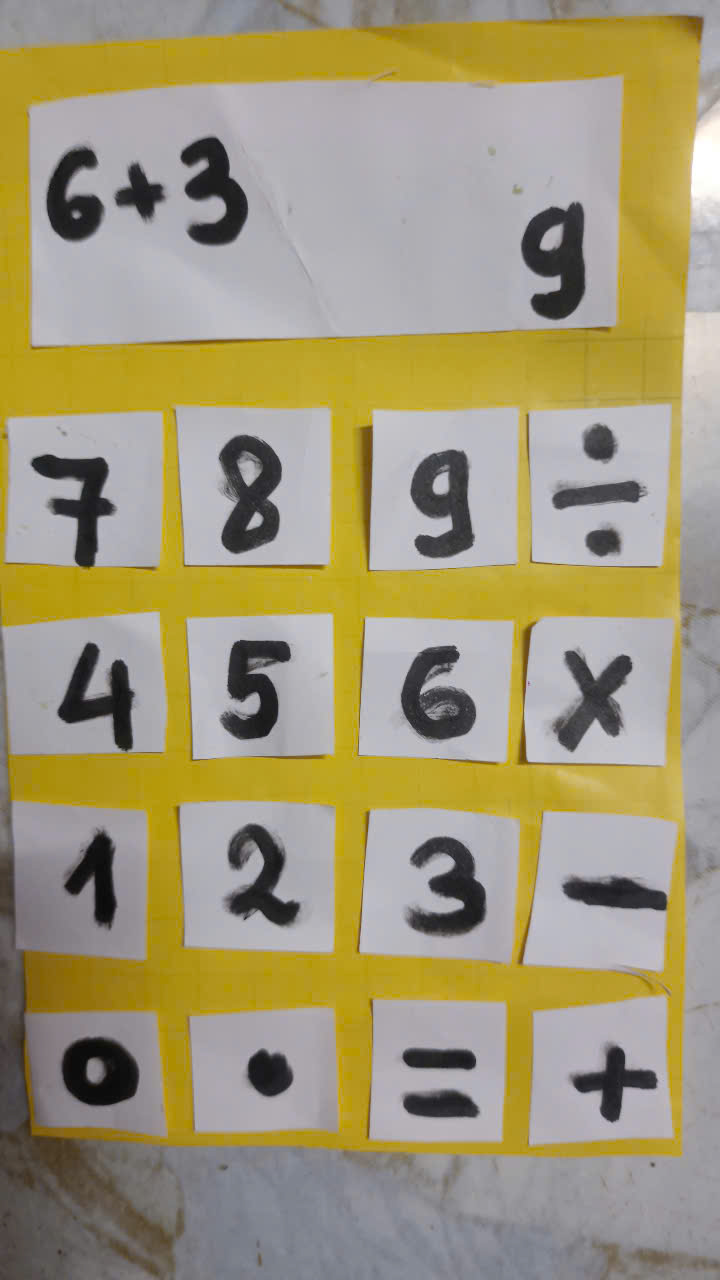 6+3
9
7 8 9 ÷
4 5 6 x
1 2 3 -
0 • = +